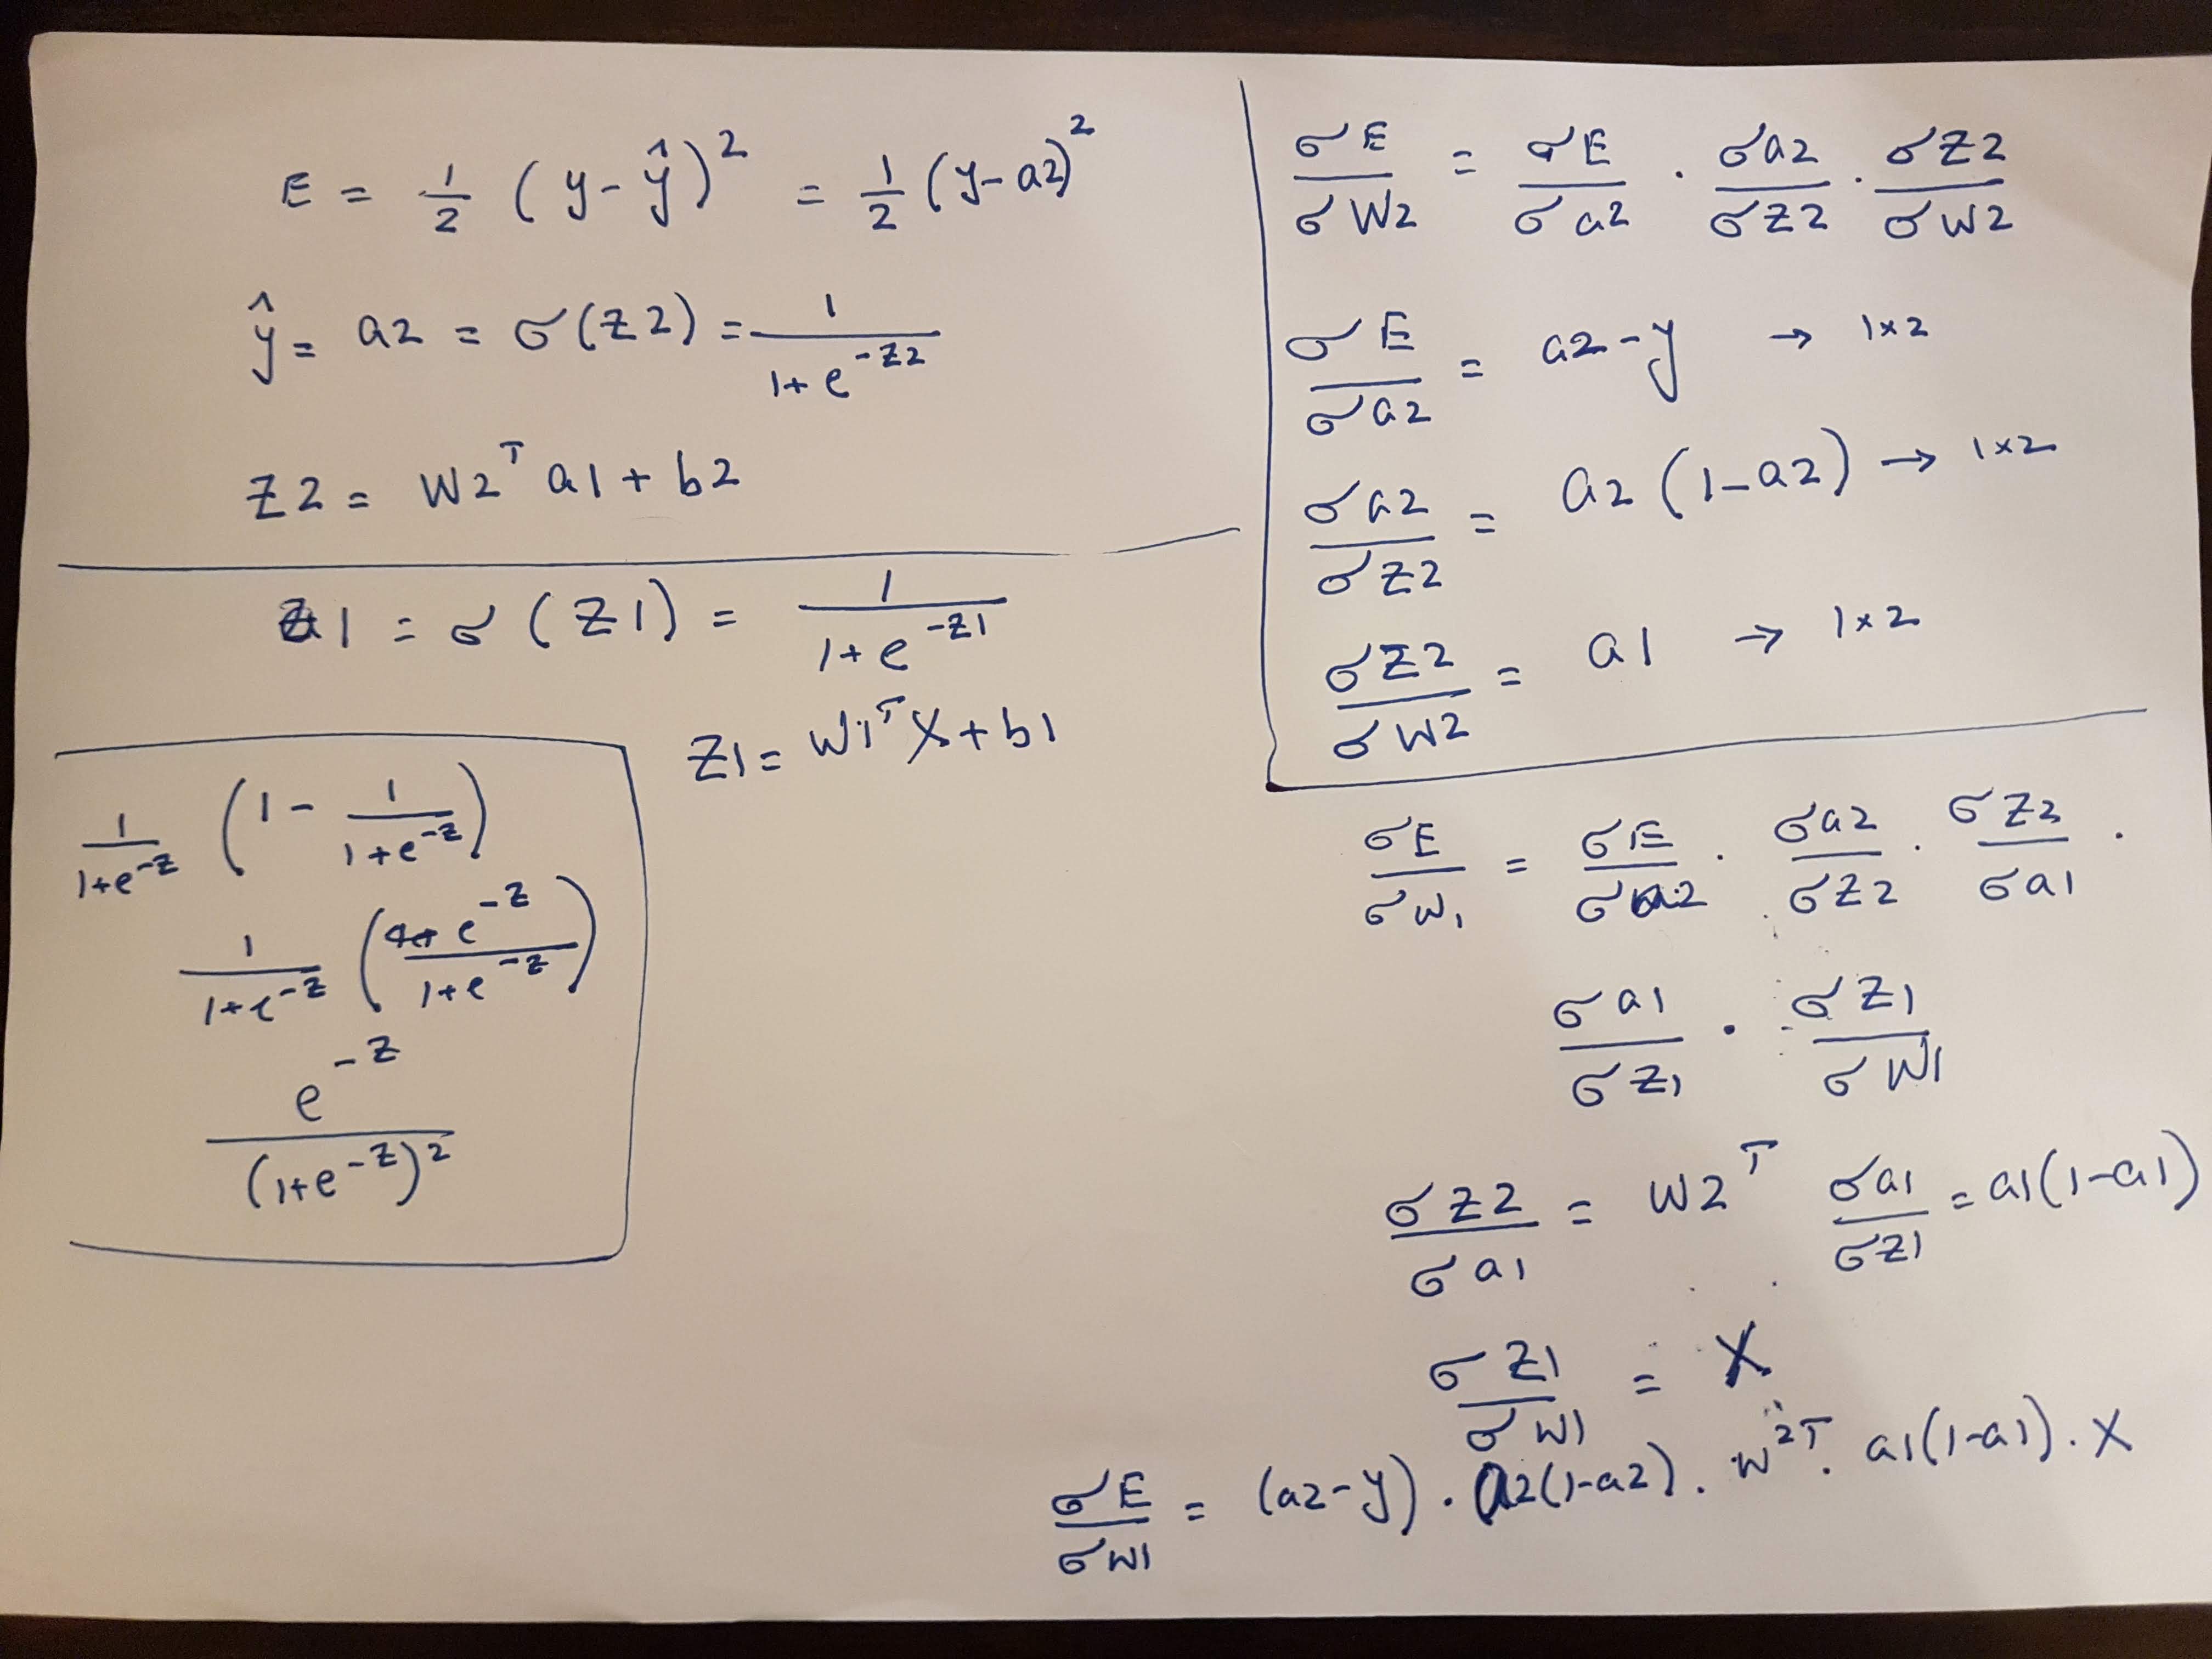 E = 1/2 (y - ŷ)² = 1/2 (y - a2)²
ŷ = a2 = σ(z2) = 1/(1+e^-z2)
z2 = W2ᵀ a1 + b2
a1 = σ(z1) = 1/(1+e^-z1)
z1 = W1ᵀ X + b1
1/(1+e^-z) (1 - 1/(1+e^-z))
1/(1+e^-z) (e^-z/(1+e^-z))
e^-z/(1+e^-z)²
σE/σW2 = σE/σa2 · σa2/σz2 · σz2/σW2
σE/σa2 = a2-y → 1x2
σa2/σz2 = a2(1-a2) → 1x2
σz2/σW2 = a1 → 1x2
σE/σW1 = σE/σa2 · σa2/σz2 · σz2/σa1 ·
σa1/σz1 · σz1/σW1
σz2/σa1 = W2ᵀ σa1/σz1 = a1(1-a1)
σz1/σW1 = X
σE/σW1 = (a2-y) · a2(1-a2) · W2ᵀ · a1(1-a1) · X